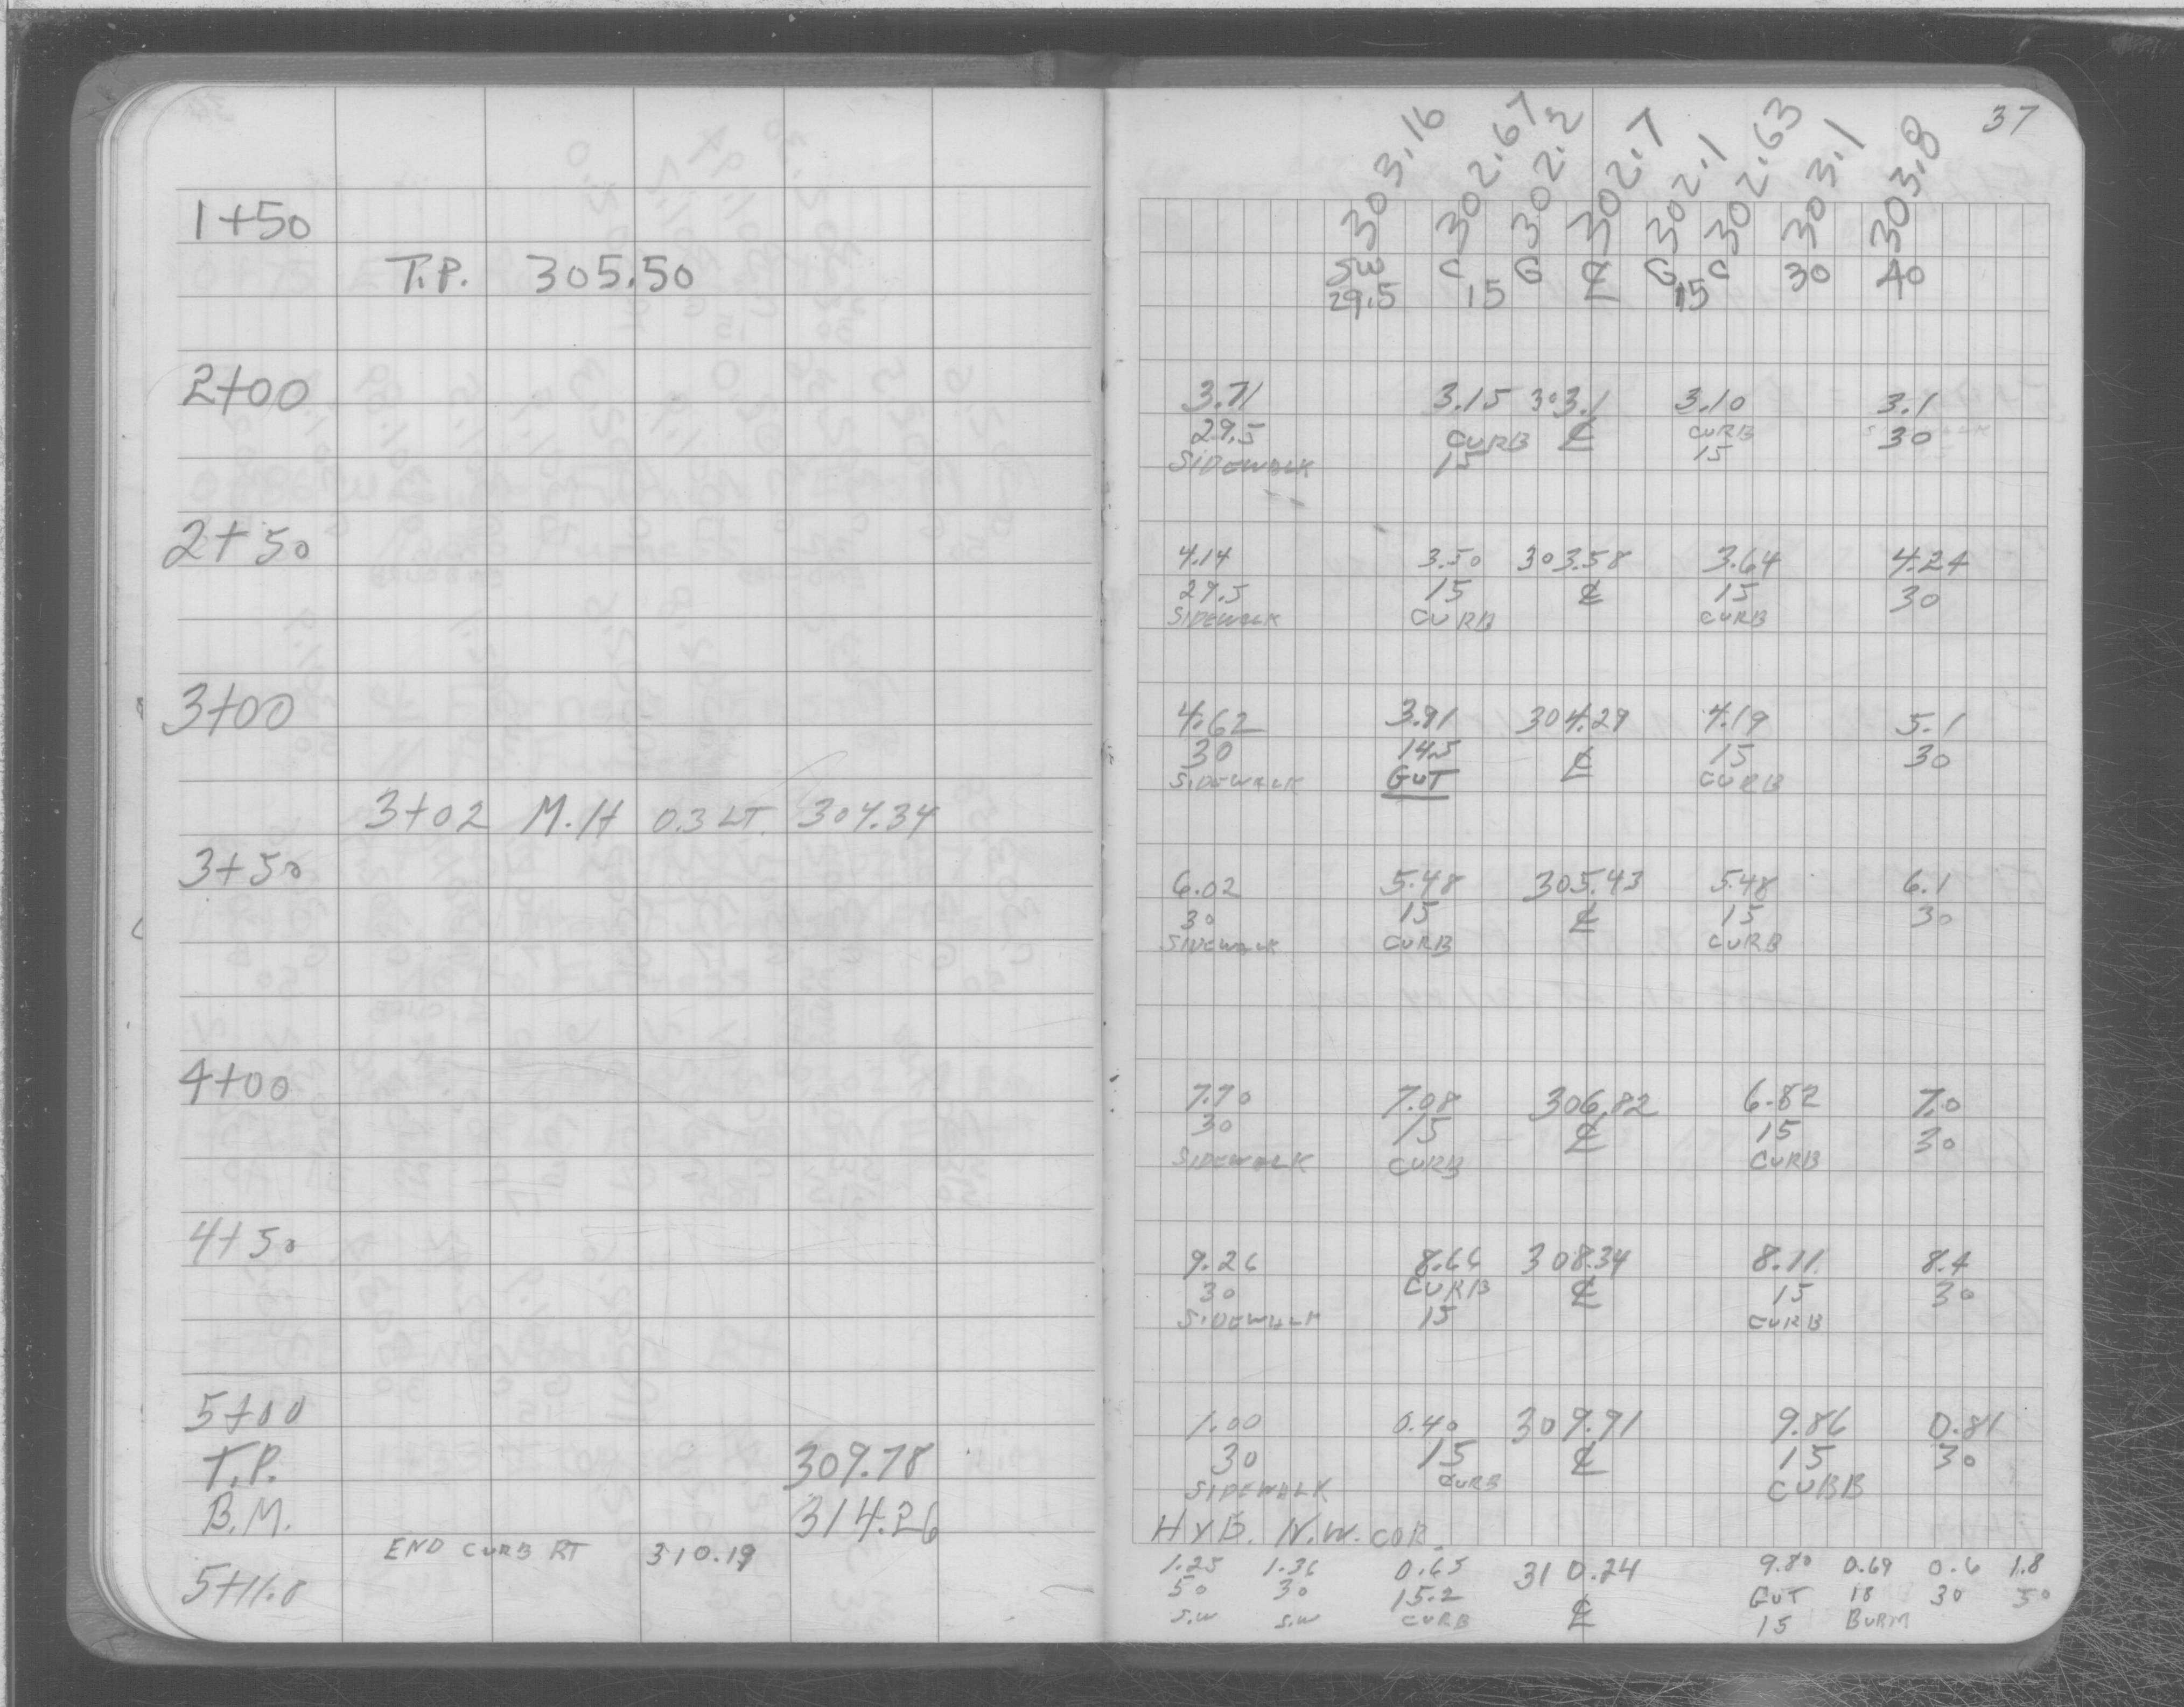 37
1+50 303.16 302.67 302.2 302.7 302.1 302.63 303.1 303.8
T.P. 305.50 SW C G ℄ G C 30 40
29.5 15 15
2+00 3.71 3.15 303.1 3.10 3.1
29.5 CURB ℄ CURB 30
SIDEWALK 15 15
2+50 4.14 3.50 303.58 3.64 4.24
29.5 15 ℄ 15 30
SIDEWALK CURB CURB
3+00 4.62 3.91 304.29 4.19 5.1
30 14.5 ℄ 15 30
SIDEWALK GUT CURB
3+02 M.H 0.3 LT. 304.34
3+50 6.02 5.48 305.43 5.48 6.1
30 15 ℄ 15 30
SIDEWALK CURB CURB
4+00 7.70 7.08 306.82 6.82 7.0
30 15 ℄ 15 30
SIDEWALK CURB CURB
4+50 9.26 8.66 308.34 8.11 8.4
30 CURB ℄ 15 30
SIDEWALK 15 CURB
5+00 1.00 0.40 309.91 9.86 0.81
T.P. 309.78 30 15 ℄ 15 30
SIDEWALK CURB CURB
B.M. 314.26 HYD. N.W. COR.
END CURB RT 310.19
5+11.8 1.25 1.36 0.65 310.24 9.80 0.69 0.6 1.8
50 30 15.2 ℄ GUT 18 30 50
S.W S.W CURB 15 BURM